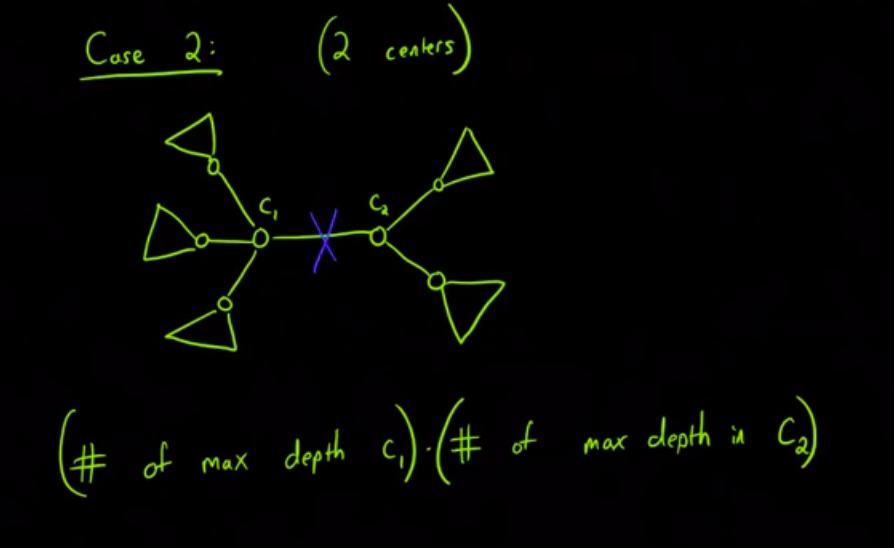 Case 2: (2 centers)
C₁ C₂
(# of max depth C₁)·(# of max depth in C₂)